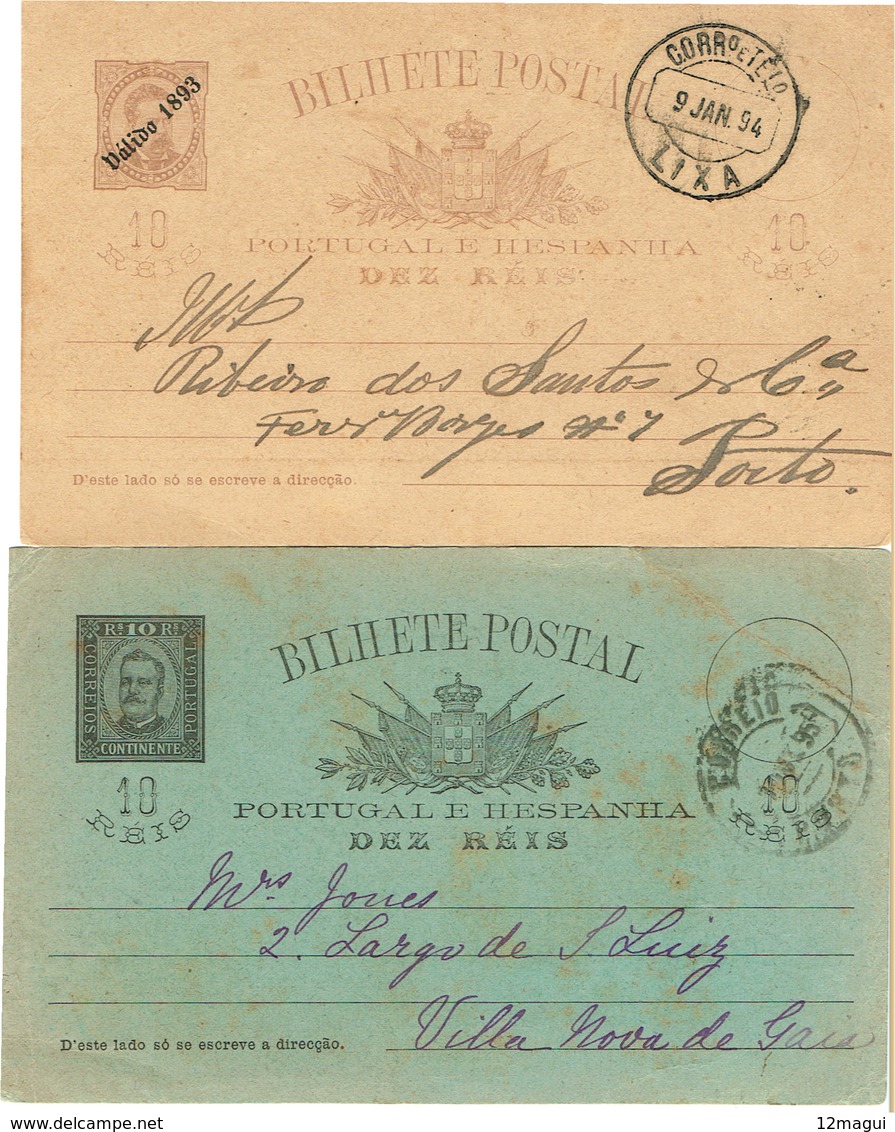 BILHETE POSTAL
Válido 1893
CORRO E TELO
9 JAN. 94
LIXA
10 RÉIS
10 RÉIS
PORTUGAL E HESPANHA
DEZ RÉIS
Ribeiro dos Santos & Cª
Porto.
D'este lado só se escreve a direcção.
BILHETE POSTAL
Rs 10 Rs
CORREIOS
PORTUGAL
CONTINENTE
CORREIO
10 RÉIS
10 RÉIS
PORTUGAL E HESPANHA
DEZ RÉIS
Mrs Jones
2. Largo de S. Luiz
Villa Nova de Gaia
D'este lado só se escreve a direcção.
12magui